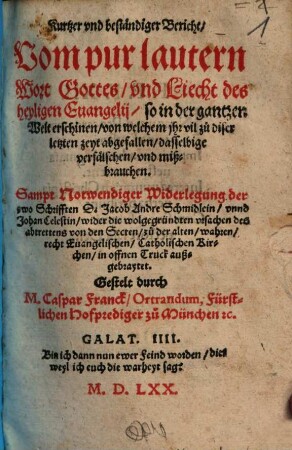 Kurtzer vnd beständiger Bericht/
Vom pur lautern
Wort Gottes/ vnd Liecht des
heyligen Euangelij/ so in der gantzen
Welt erschinen/ von welchem jhr vil zů diser
letzten zeyt abgefallen/ dasselbige
verfälschen/ vnd miß-
brauchen.
Sampt Notwendiger Widerlegung der
zwo Schrifften D. Jacob Andre Schmidlein/ vnnd
Johan Celestin/ wider die wolgegründten vrsachen des
abtrettens von den Secten/ zů der alten/ wahren/
recht Euangelischen/ Catholischen Kir-
chen/ in offnen Truck auß-
gebraytet.
Gestelt durch
M. Caspar Franck/ Ortrandum, Fürst-
lichen Hofprediger zů München ꝛc.
GALAT. IIII.
Bin ich dann nun ewer Feind worden/ die-
weyl ich euch die warheyt sag?
M. D. LXX.